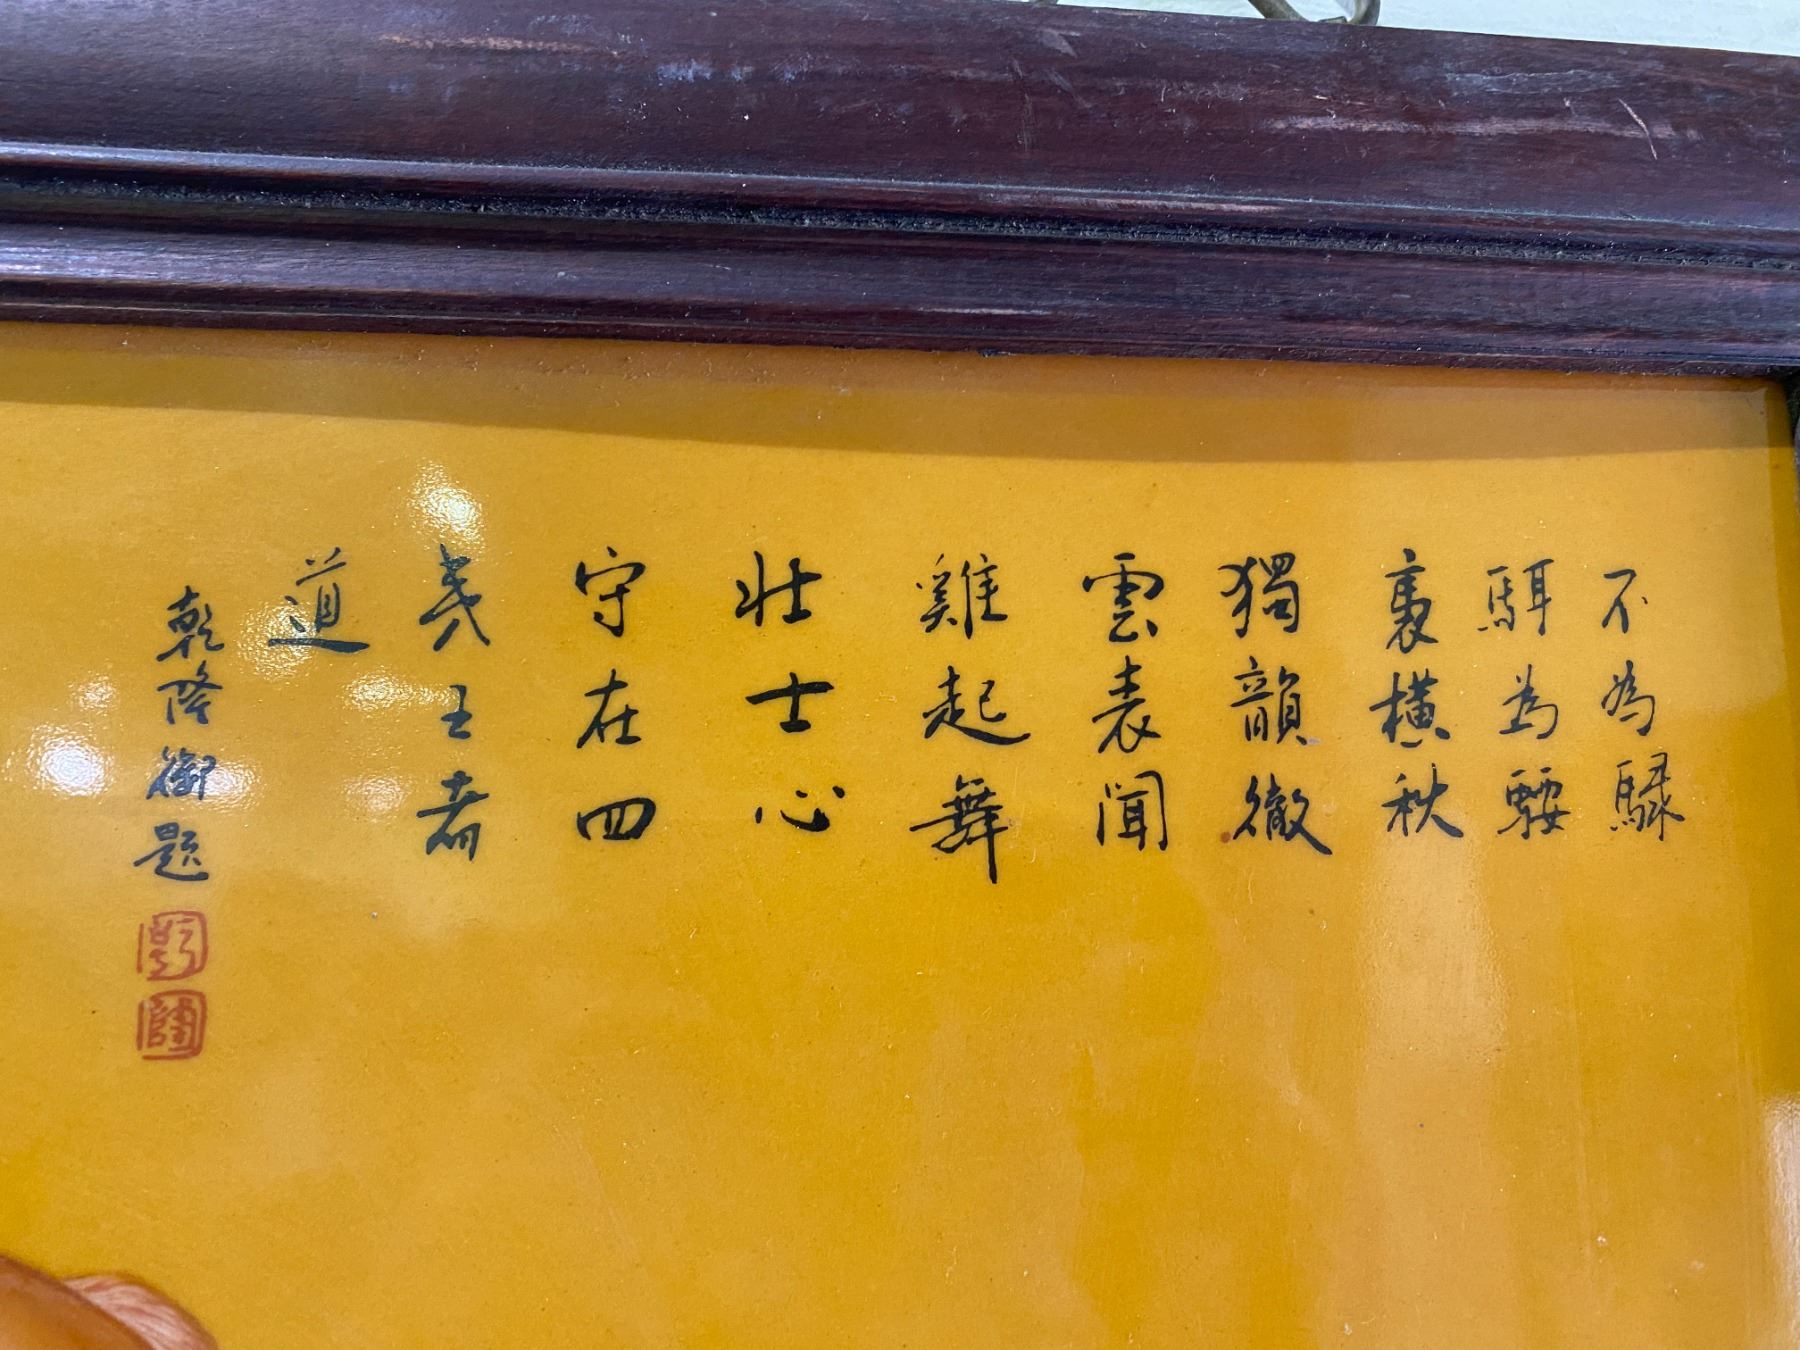 不為騄
駬為騕
裏橫秋
獨韻徹
雲表聞
雞起舞
壯士心
守在四
夷王者
道
乾隆御題